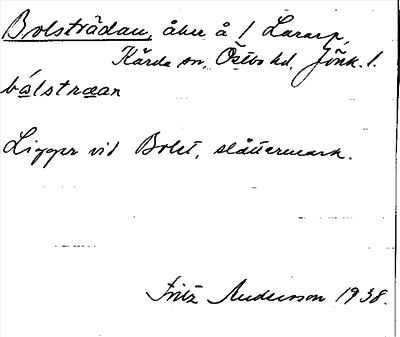 Bolsträdan, åker å 1 Lararp,
Kärda sn, Östbo hd, Jönk. l.
bålstræan
Ligger vid Bolst, slåttermark.
Fritz Andersson 1938.